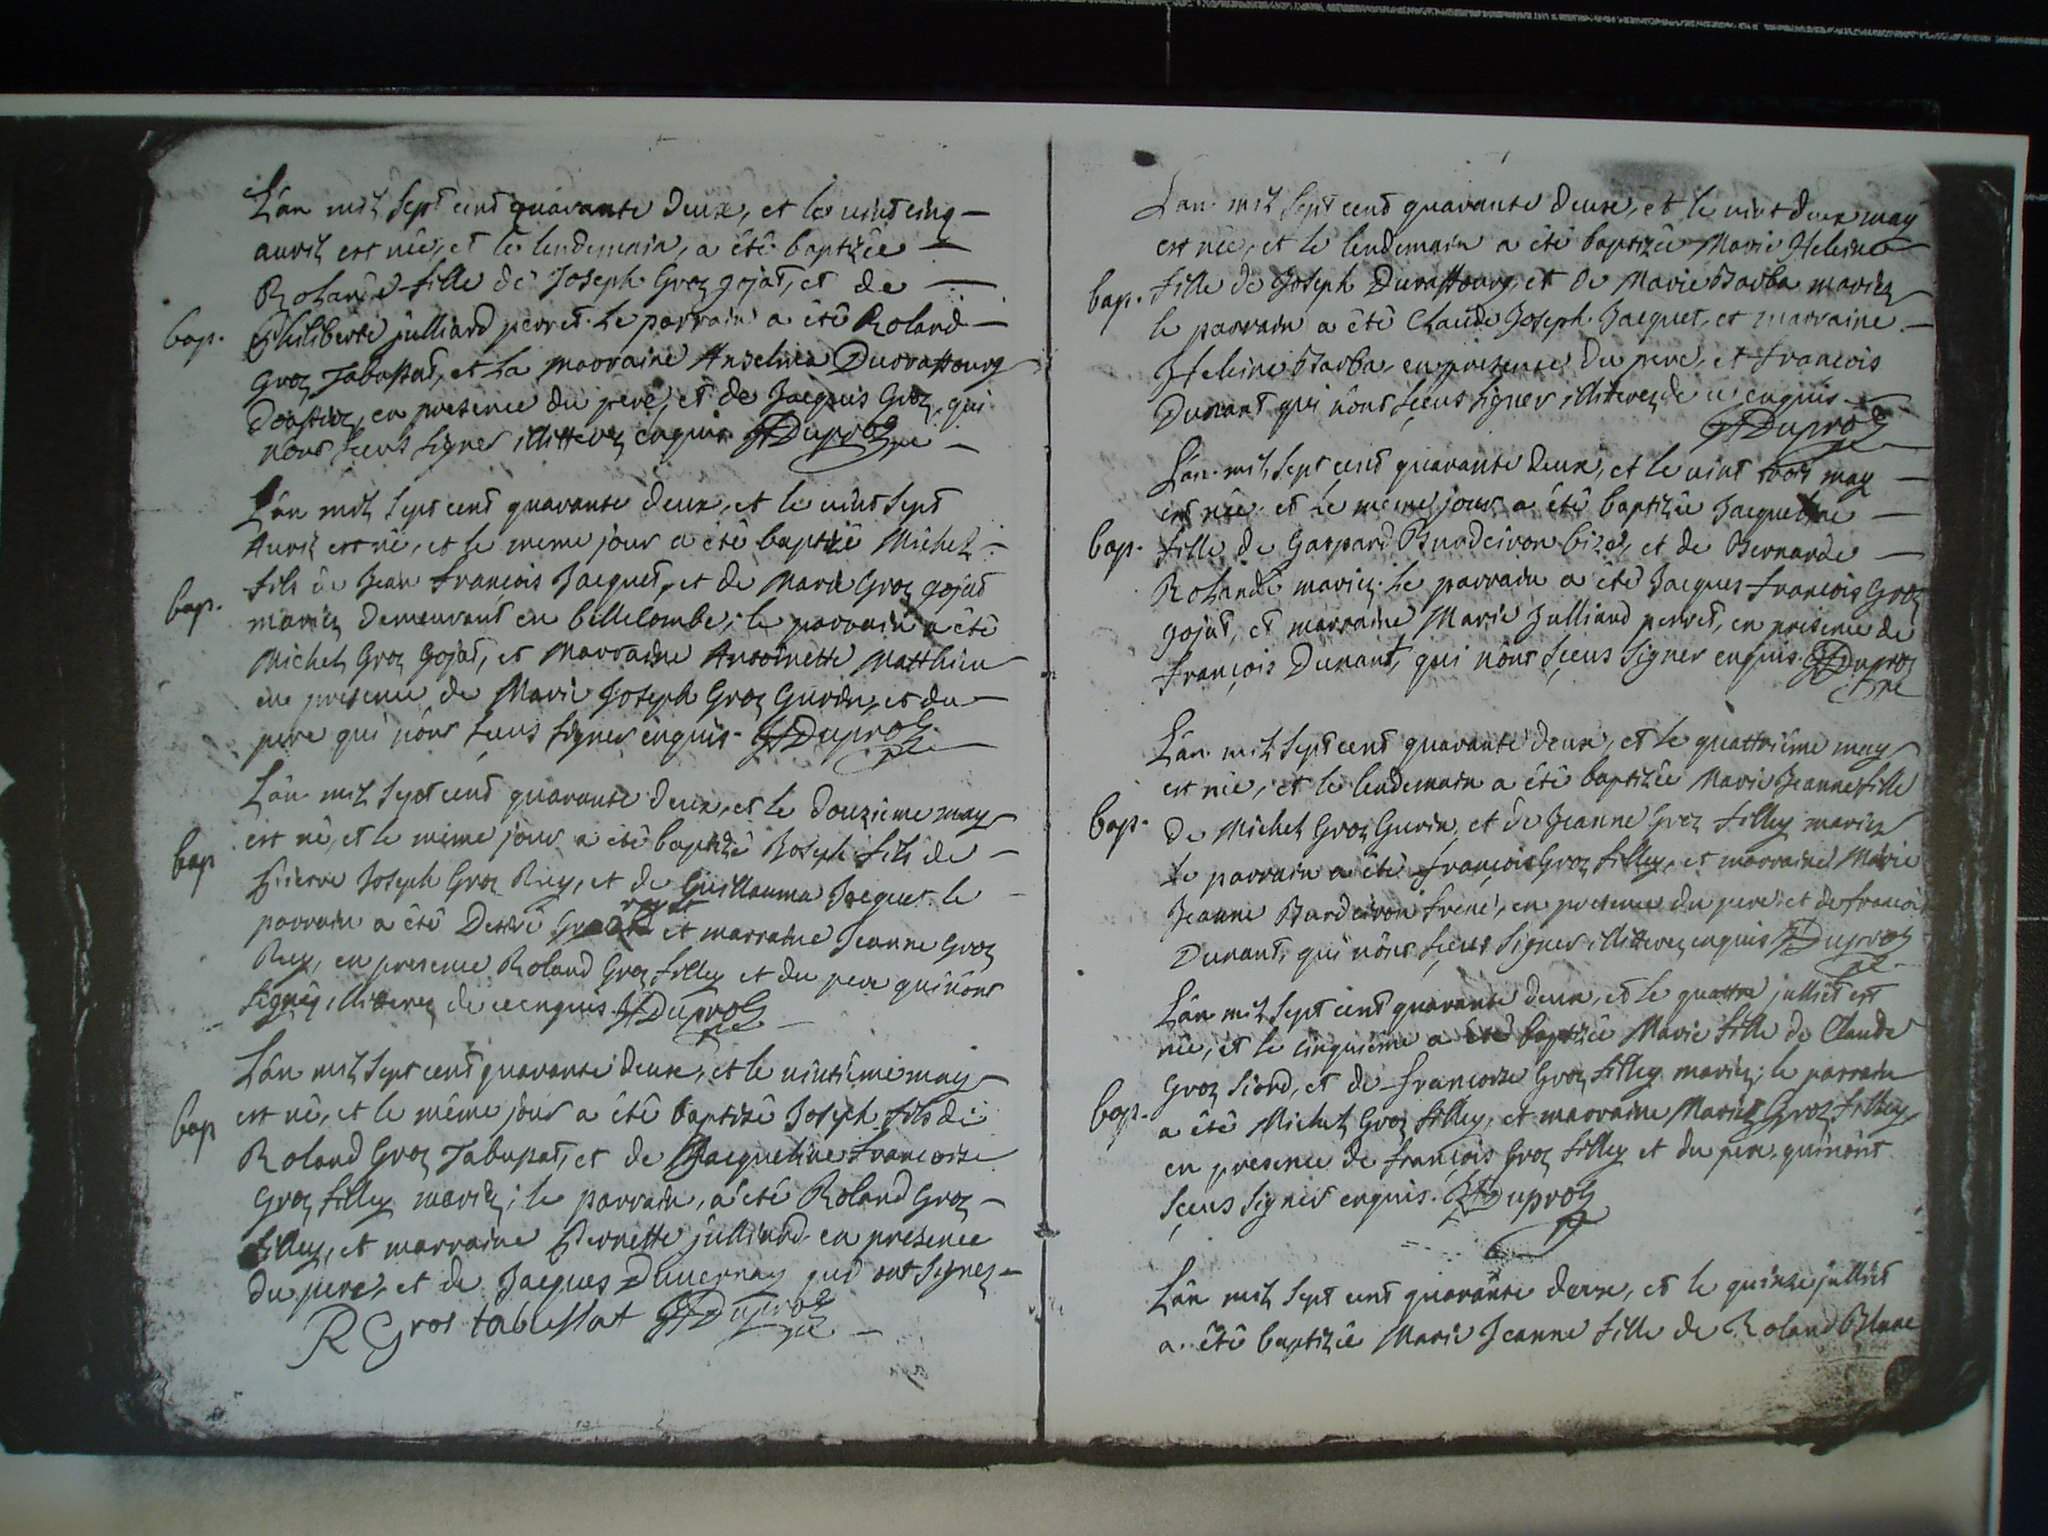 L'an mil sept cent quarante deux, et le vint cinq
avril est née, et le lendemain, a été baptizée
Rolande fille de Joseph Groz gojat, et de
bap. Philiberte julliard perret. le parrain a été Roland
Groz Tabussat, et la marraine Anselma Duraffourg
en presence du pere, et de Jacques Groz, qui
n'ont sceus signer illitterez enquis. JFDuproz pre
L'an mil sept cent quarante deux, et le vint sept
Avril est né, et le meme jour a été baptizé Michel
bap. fils de Jean François Jacquet, et de Marie Groz gojat
mariez demeurant en bellecombe; le parrain a été
Michel Groz Gojat, et Marraine Antoinette Matthieu
en presence de Marie Joseph Groz Gurin, et du
pere qui n'ont sceus signer enquis. JFDuproz pre
L'an mil sept cent quarante deux, et le douzieme may
est né, et le meme jour a été baptizé Joseph fils de
bap Pierre Joseph Groz Rey, et de Guillauma Jacquet. le
parrain a été Desiré et marraine Jeanne Groz
Rey, en presence Roland Groz filley et du pere qui n'ont
signéz, illitterez de ce enquis. JFDuproz pre
L'an mil sept cent quarante deux, et le vintième may
bap est né, et le même jour a été baptizé Joseph fils de
Roland Groz Tabupat, et de Jacqueline Francoise
Groz filley mariez; le parrain, a été Roland Groz
filley, et marraine Pernette julliard en presence
du pere, et de Jacques Duvernay qui ont signez
R Gros tabussat JFDuproz pre
L'an mil sept cent quarante deux, et le vint deux may
est née, et le lendemain a été baptizée Marie Heleine
bap. fille de Joseph Duraffourg, et de Marie Barba mariez
le parrain a été Claude Joseph Jacquet, et marraine
Heleine Barba, en presence du pere, et François
Dunant qui n'ont sçeus signer illiterez de ce enquis
JFDuproz pre
L'an mil sept cent quarante deux, et le vint trois may
est née et le même jour a été baptizée Jacqueline
bap. fille de Gaspard Burdeiron bizet, et de Bernarde
Rolandé mariez. le parrain a été Jacques François Groz
gojat, et marraine Marie Julliard perret, en presence de
François Dunant, qui n'ont sçeus signer enquis JFDuproz
pre
L'an mil sept cent quarante deux, et le quattrième may
est née, et le lendemain a été baptizée Marie Jeanne fille
bap. de Michel Groz Gurin, et de Jeanne Groz filley mariez
le parrain a été François Groz filley, et marraine Marie
Jeanne Bardeiron frené, en presence du pere et de françois
Dunant, qui n'ont sçeus signer illitterez enquis JFDuproz
pre
L'an mil sept cent quarante deux, et le quattre julliet est
née, et le cinquième a été baptizée Marie fille de Claude
Groz Siord, et de Françoise Groz filley mariez; le parrain
bap. a été Michel Groz filley, et marraine Marie Groz filley
en presence de François Groz filley et du pere, qui n'ont
sçeus signer enquis. JFDuproz
pre
L'an mil sept cent quarante deux, et le quinze julliet
a été baptizée Marie Jeanne fille de Roland Blanc